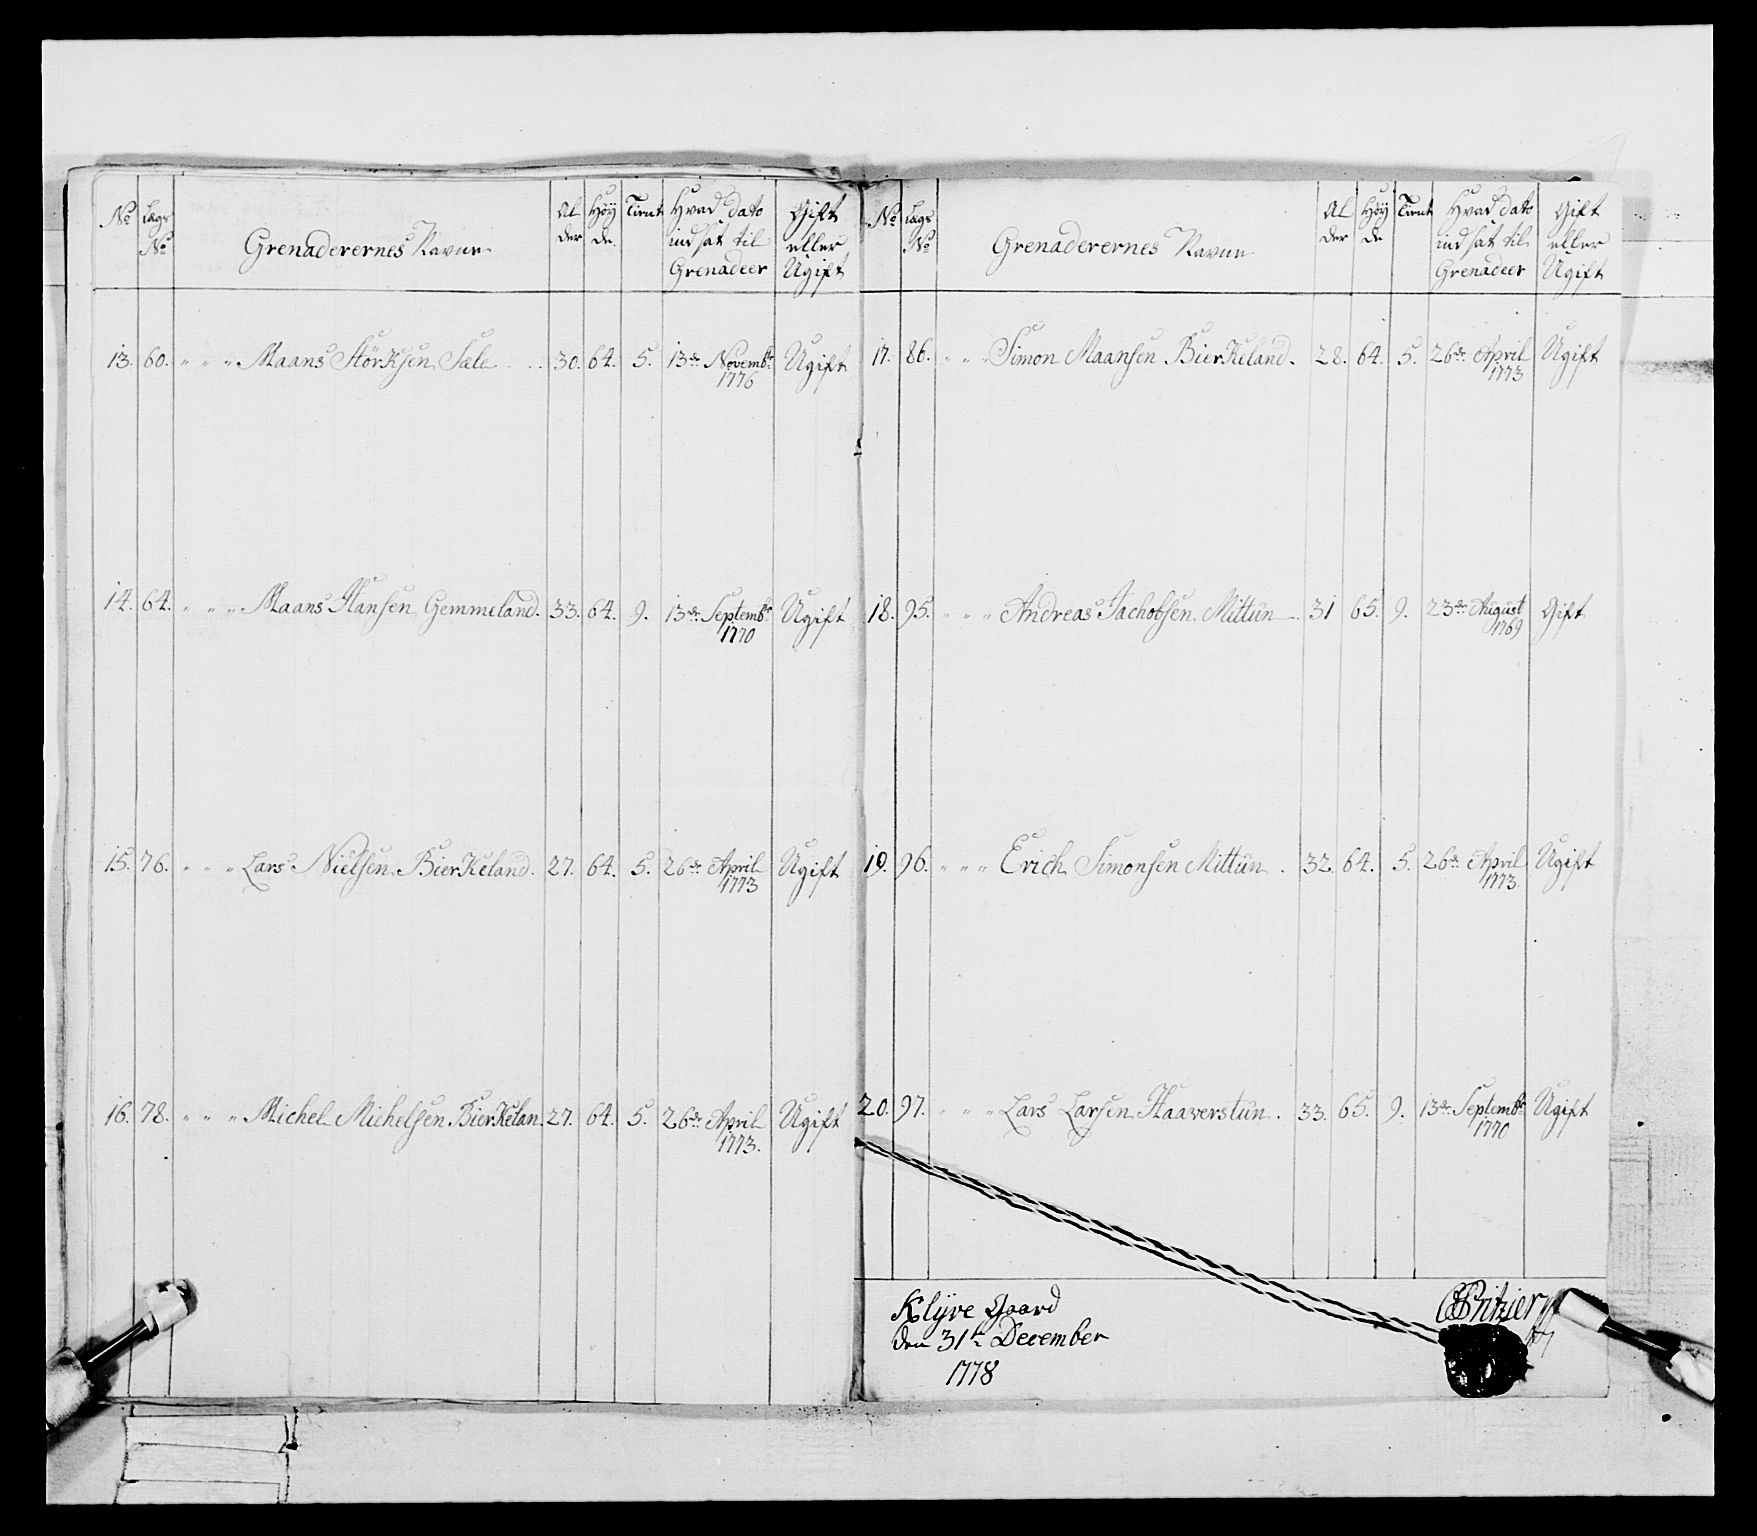 No Lags No Grenaderernes Navne Al der Höy de. Tient Hvad dato indsat til Grenadeer Gift eller Ugift
13. 60. " " " Maans Störksen Sæle . . 30. 64. 5. 13de Novembr 1776 Ugift
14. 64. " " " Maans Hansen Gemmeland. 33. 64. 9. 13de Septembr 1770 Ugift
15. 76. " " " Lars Nielsen Bierkeland. 27. 64. 5. 26de April 1773 Ugift
16. 78. " " " Michel Michelsen Bierkelan. 27. 64. 5. 26de April 1773. Ugift
No Lags No Grenaderernes Navne Al der Höy de Tient Hvad dato indsat til Grenadeer Gift eller Ugift
17. 86. " " " Simon Maansen Bierkeland. 28. 64. 5. 26de April 1773 Ugift
18. 95. " " " Andreas Jachobsen Mittun 31 65. 9. 23de August 1769 Gift
19. 96. " " " Erich Simonsen Mittun . 32. 64. 5. 26de April 1773. Ugift
20. 97. " " " Lars Larsen Haaverstun. 33. 65. 9. 13de Septembr 1770 Ugift
Klÿve Gaard
den 31te December
1778